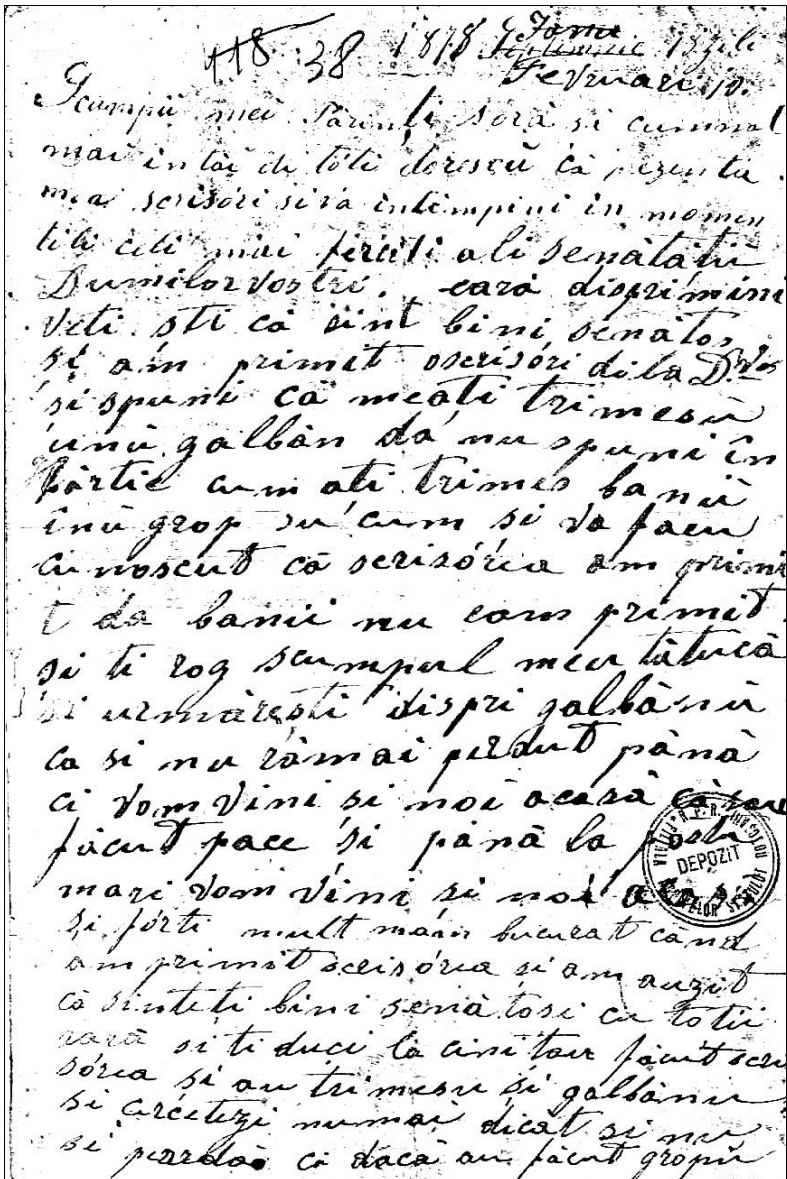 118 38 1878 13 zili
Fevruarie 10.
Scumpii mei Părinți soră si cumnat
mai întâi di toti dorescŭ ca prezenta
mea scrisóri si vă intimpini in momen
tili celi mai fericiti ali senătății
Dumilor vostri. eară disprimini
veti sti că sint bini senătos
si am primit oscrisóri di la D. vos
si spuni că meati trimesŭ
unŭ galbăn dă nu spuni în
hărtie cum ati trimes banii
înŭ grop sŭ cum si va facu
cunoscut că scrisórea am primi
t da banii nu eam primit
si ti rog scumpul meu tătucă
si urmărești dispri galbănŭ
ca si nu rămăi perdut până
ci vom vini si noi acasă că sau
făcut pace si până la pasti
mari vom vini si noi acasă
DEPOZIT
si fórti mult mam bucurat cănd
am primit scrisórea și am auzit
că sinteti bini senătosi cu totii
eară si ti duci la cini tau făcut scri
sórea si au trimesu si galbănu
si cercetezi numai dicăt si nu
si peardă că dacă au făcut gropu